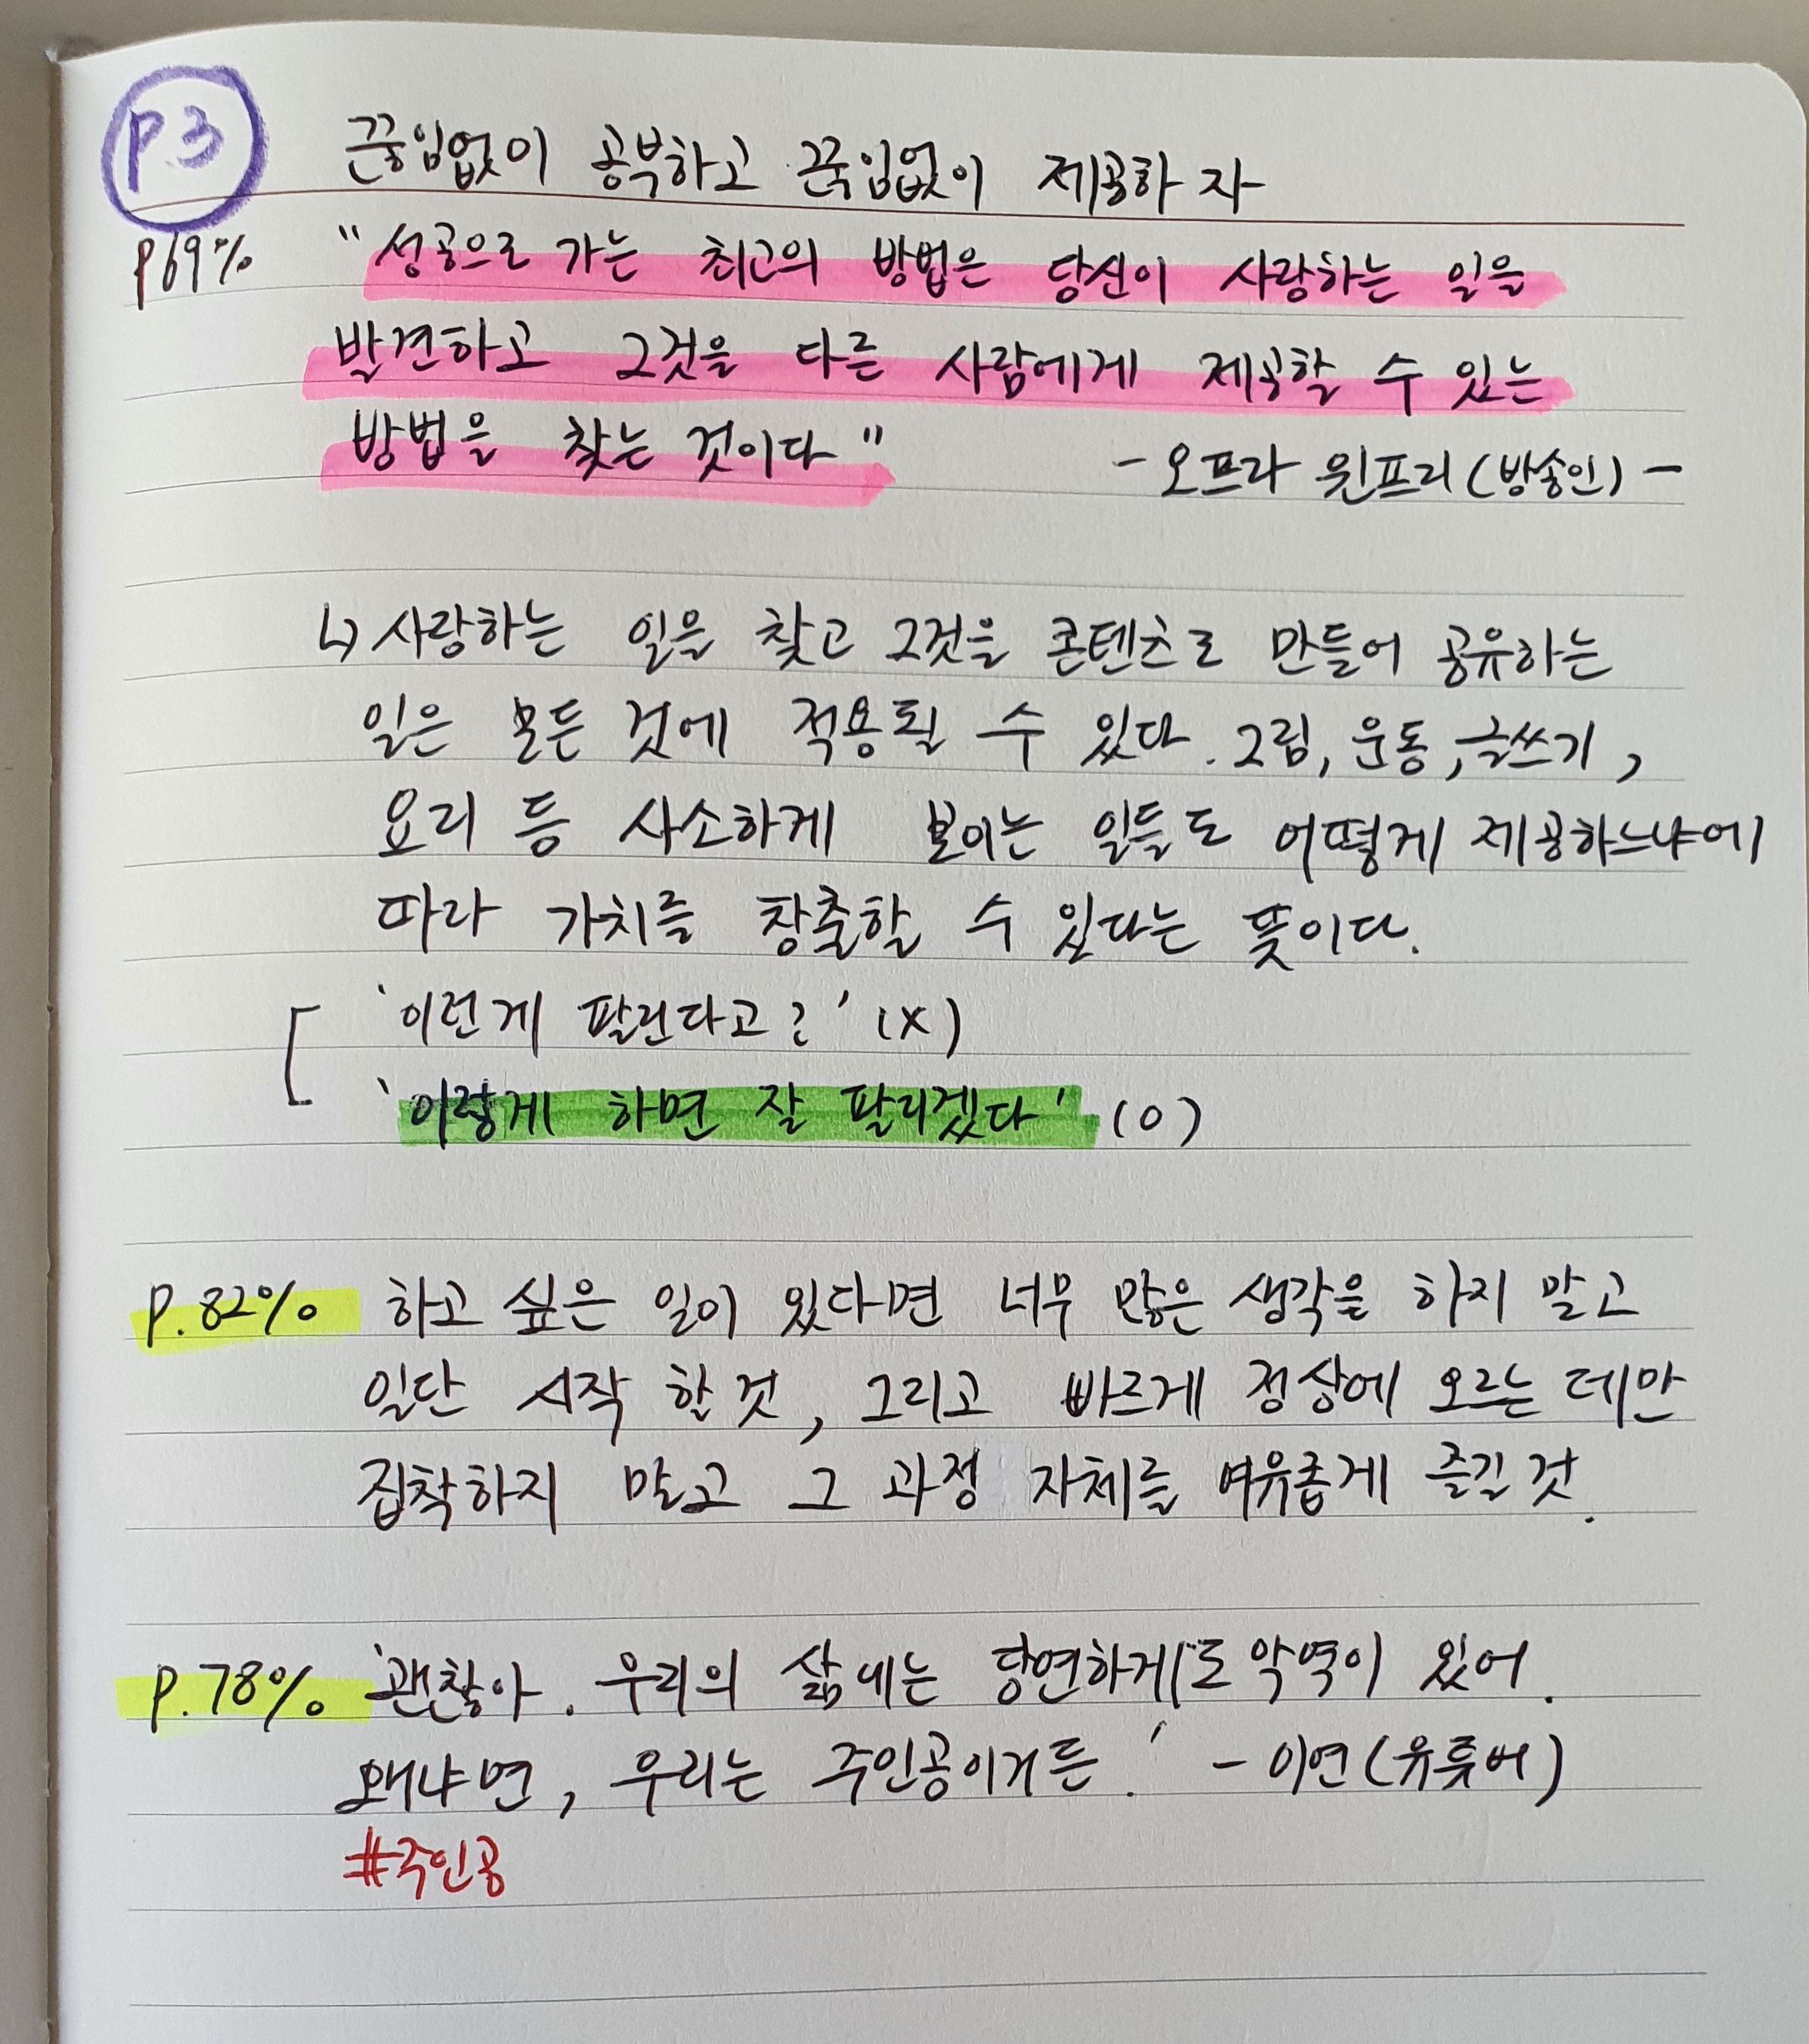 P.3
끊임없이 공부하고 끊임없이 제공하자
P69% "성공으로 가는 최고의 방법은 당신이 사랑하는 일을
발견하고 그것을 다른 사람에게 제공할 수 있는
방법을 찾는 것이다" - 오프라 윈프리(방송인) -
↳ 사랑하는 일을 찾고 그것을 콘텐츠로 만들어 공유하는
일은 모든 것에 적용될 수 있다. 그림, 운동, 글쓰기,
요리 등 사소하게 보이는 일들도 어떻게 제공하느냐에
따라 가치를 창출할 수 있다는 뜻이다.
'이런게 팔린다고?' (X)
'이렇게 하면 잘 팔리겠다' (O)
P.82% 하고 싶은 일이 있다면 너무 많은 생각을 하지 말고
일단 시작 할 것, 그리고 빠르게 정상에 오르는 데만
집착하지 말고 그 과정 자체를 여유롭게 즐길 것.
P.78% '괜찮아. 우리의 삶에는 당연하게도 악역이 있어.
왜냐면, 우리는 주인공이거든.' - 이연(유튜버)
#주인공